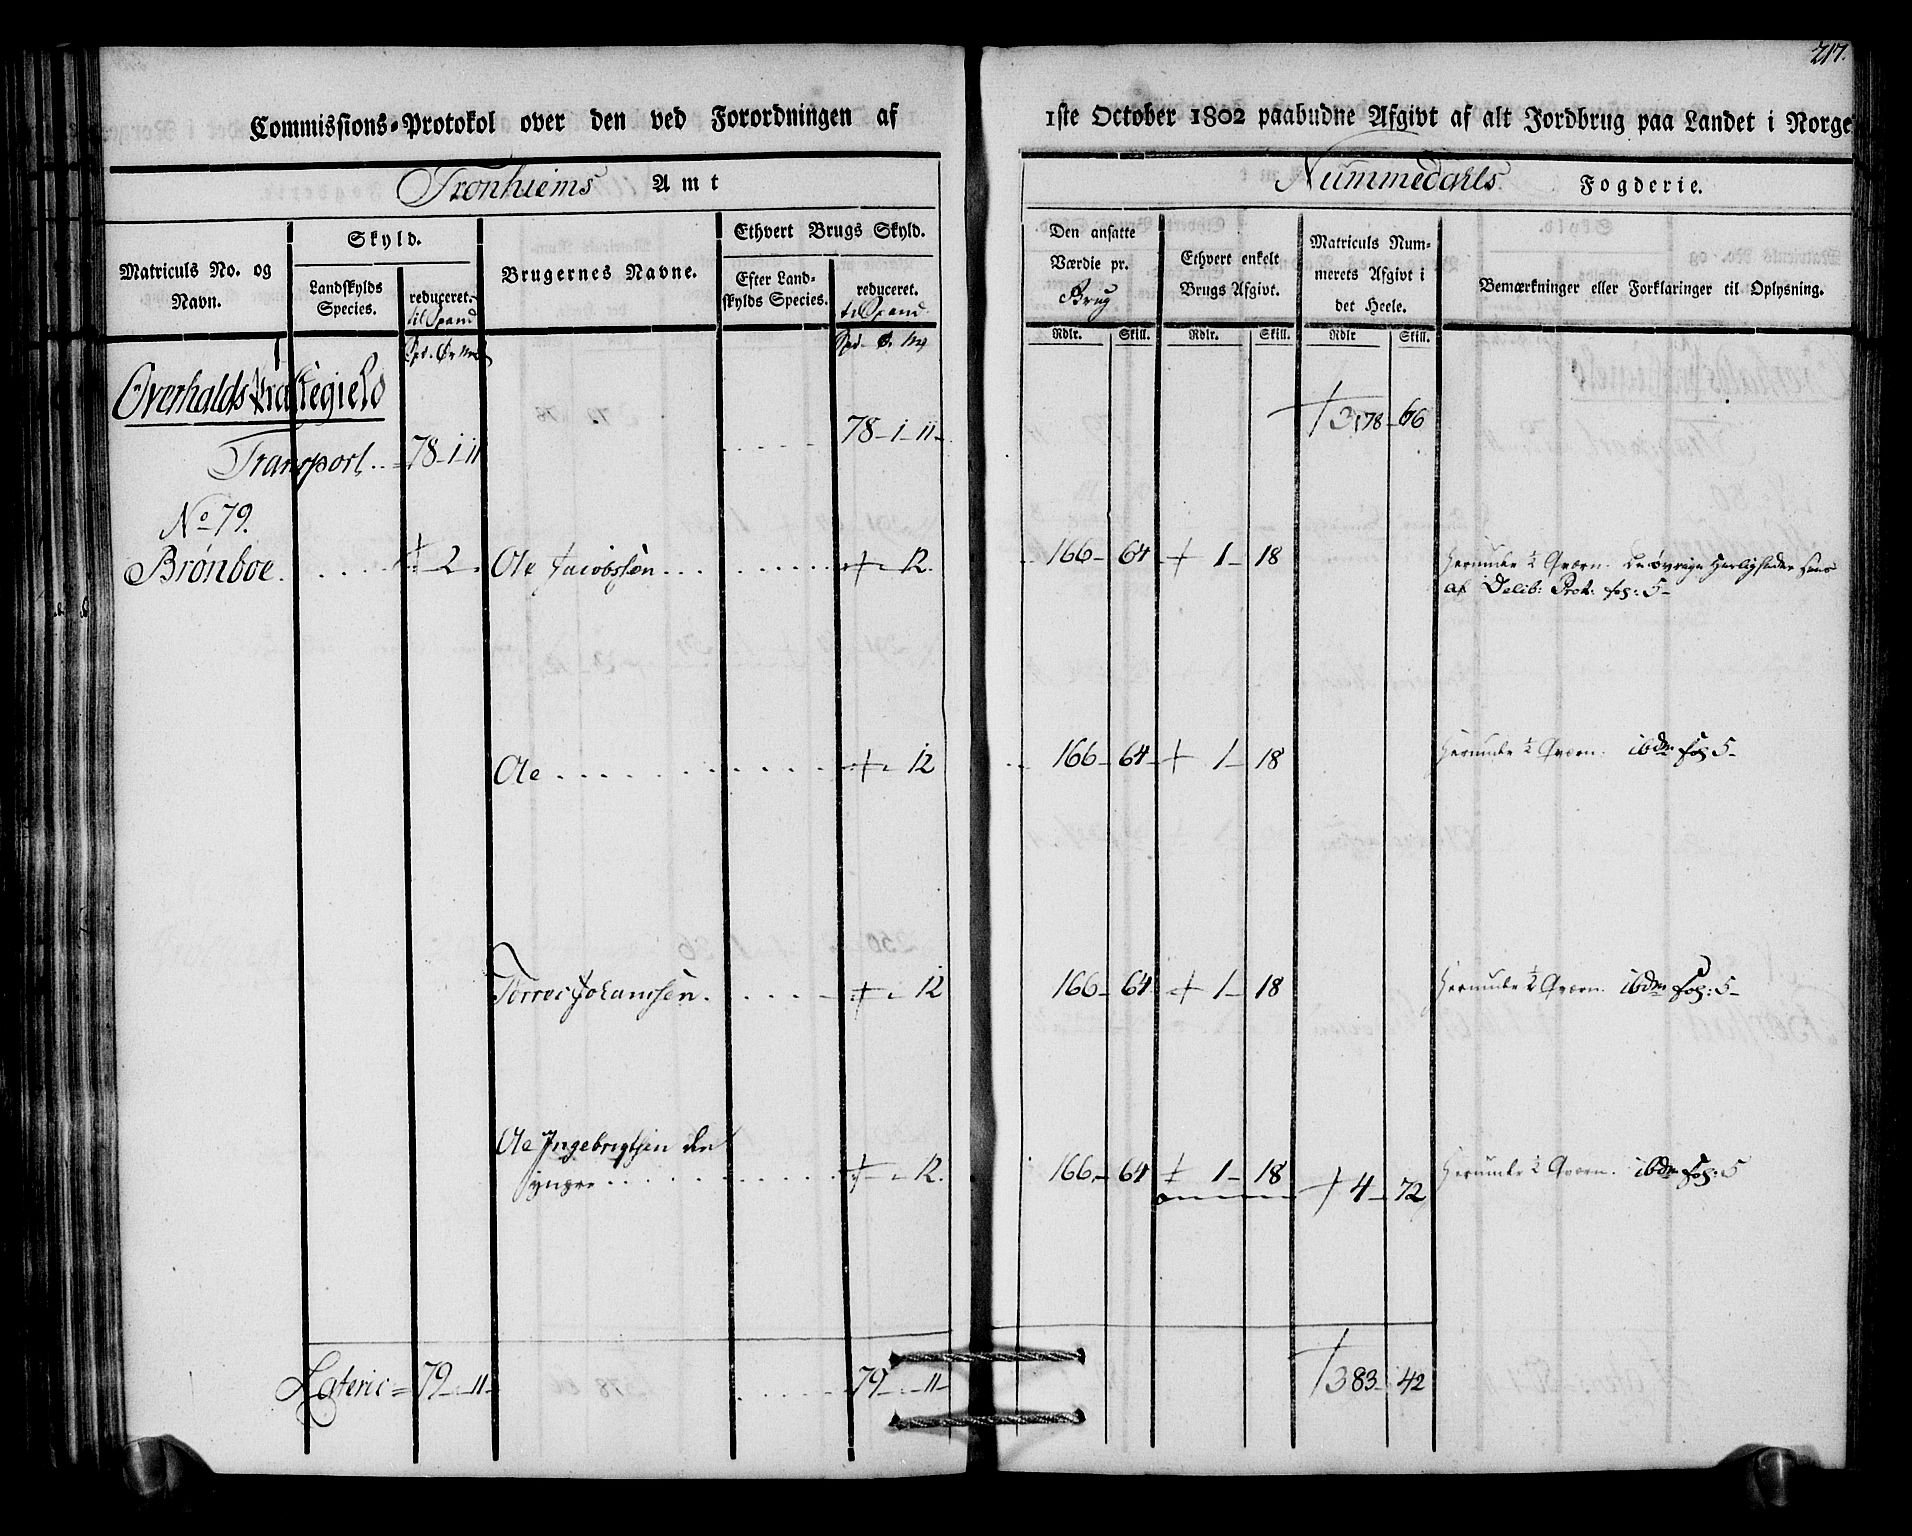 217.
Commissions-Protokol over den ved Forordningen af 1ste October 1802 paabudne Afgivt af alt Jordbrug paa Landet i Norge
Tronhiems Amt
Nummedahls Fogderie.
Matriculs No. og Navn.
Skyld.
Landskylds Species.
reduceret. til Spand
Brugernes Navne.
Ethvert Brugs Skyld.
Efter Landskylds Species.
reduceret. til Spand.
Den ansatte Værdie pr. Brug
Ethvert enkelt Brugs Afgivt.
Matriculs Nummerets Afgivt i det Heele.
Bemærkninger eller Forklaringer til Oplysning.
Rdlr. Skill. Rdlr. Skill. Rdlr Skill.
Overhalds Præstegield
Transport 78-1-11 78-1-11 378-66
No 79.
Brønboe. 2 Ole Jacobssøn 12 166-64 1-18 Herunder ½ Qværn. De øvrige Herligheder sees
af Delib: Prot: fol: 5-
Ole 12 166-64 1-18 Herunder ½ Qværn. ibdm fol 5-
Torres Johansen. 12 166-64 1-18 Herunder ½ Qværn. ibdm fol: 5-
Ole Ingebrigtsen den
yngre 12. 166-64 1-18 4-72 Herunder ½ Qværn. ibdm fol: 5
Lateris 79-11- 79-11- 383-42